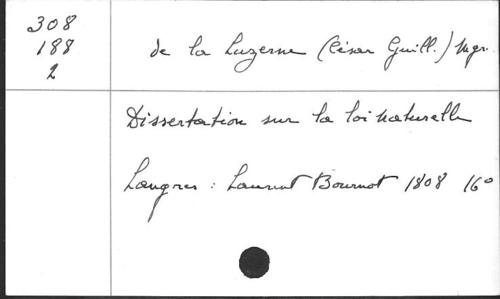 308
188
2
de la Luzerne (César Guill.) Mgr.
Dissertation sur la loi naturelle
Langres : Laurent Bournot 1808 16°